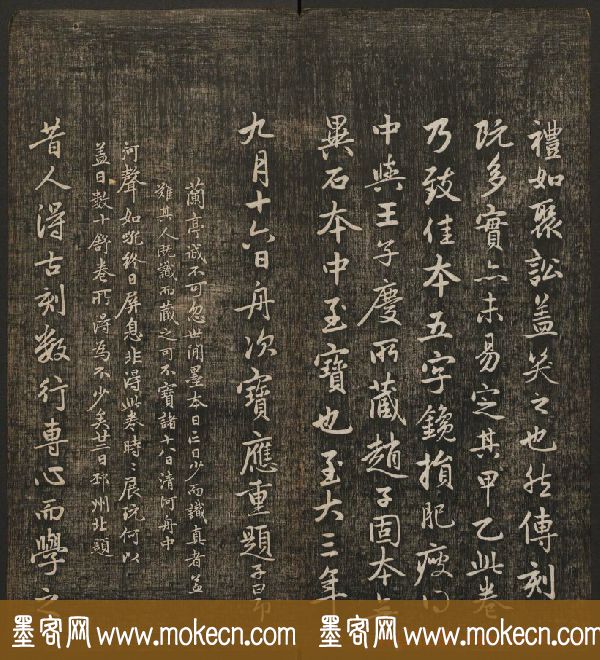 禮如聚訟蓋笑之也然傳刻
既多實亦未易定其甲乙此卷
乃致佳本五字鑱損肥瘦得
中與王子慶所藏趙子固本無
異石本中至寶也至大三年
九月十六日舟次寶應重題子昂
蘭亭誠不可忽世間墨本日亡日少而識真者蓋
難其人既識而藏之可不寶諸十八日清河舟中
河聲如吼終日屏息非得此卷時時展玩何以
蓋日數十舒卷所得為不少矣廿二日邳州北題
昔人得古刻數行專心而學之
墨客网 www.mokecn.com 墨客网 www.mokecn.com